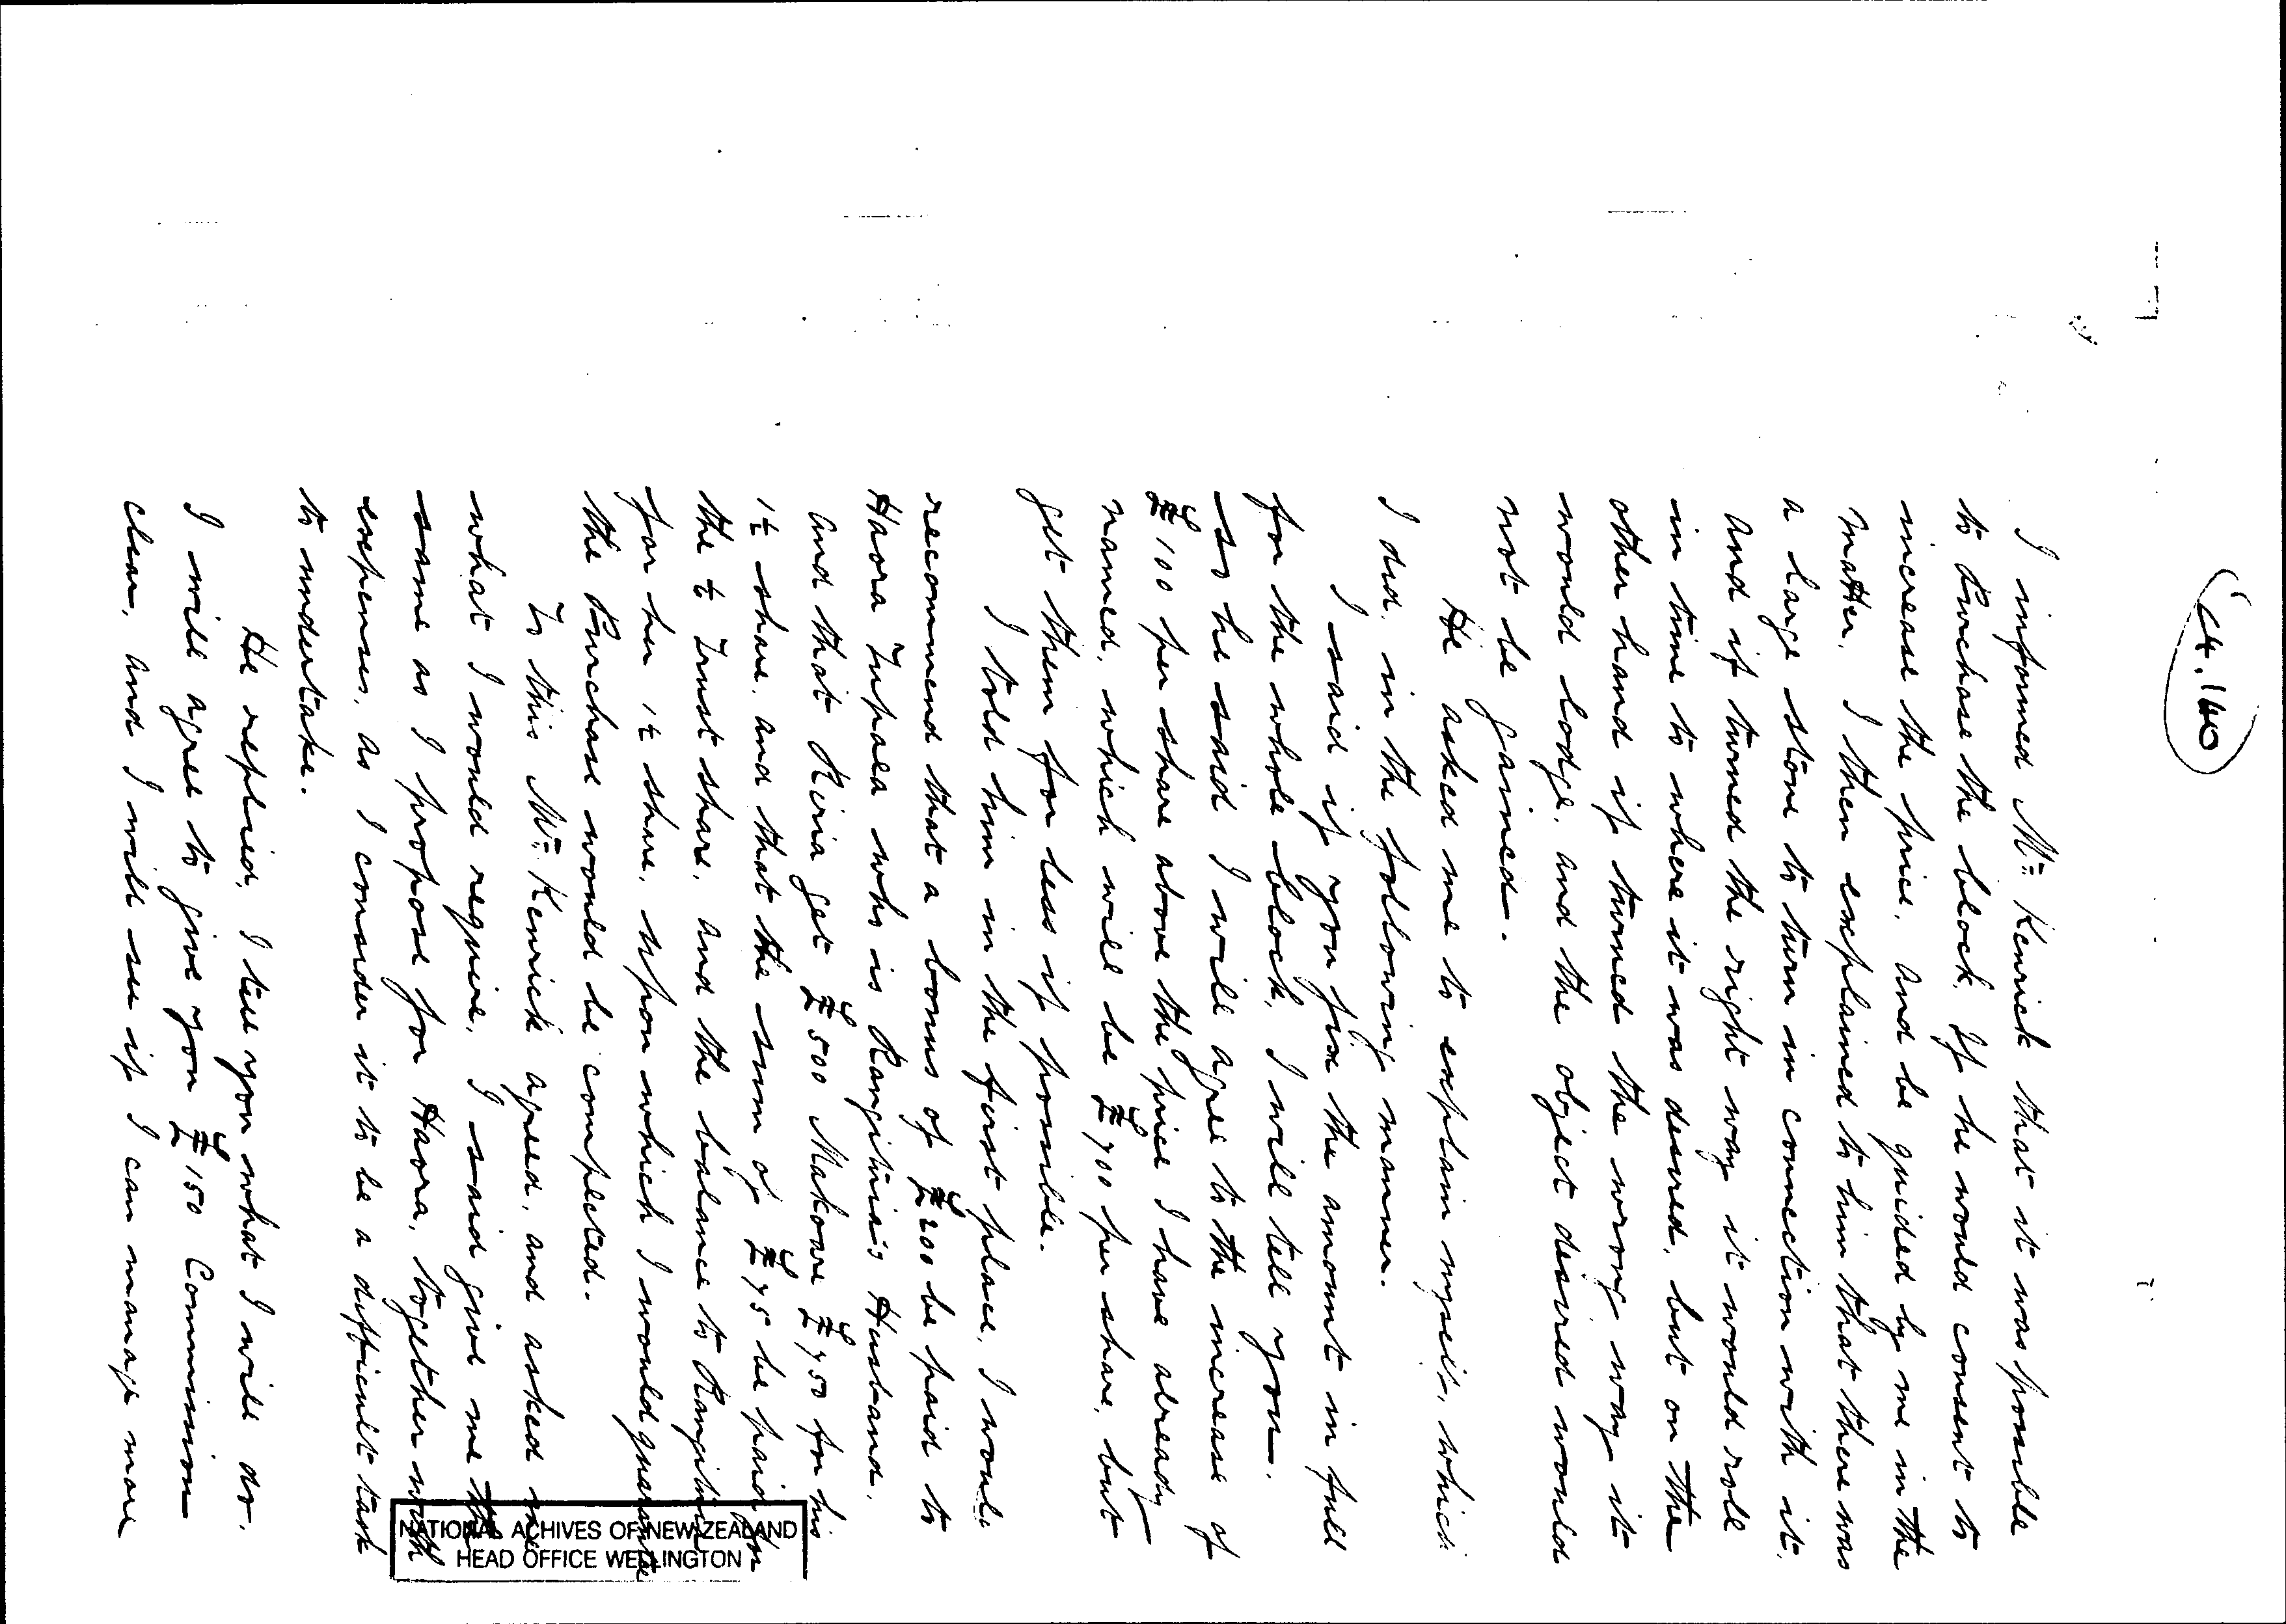 C4.140
I informed Mr. Kenrick that it was possible
to Purchase the block, If he would consent to
increase the price, and be guided by me in the
matter. I then explained to him that there was
a large stone to turn in connection with it,
and if turned the right way it would roll
in time to where it was desired, but on the
other hand if turned the wrong way it
would lodge, and the object desired would
not be gained.
He asked me to explain myself, which
I did, in the following manner.
I said if you fix the amount in full
for the whole block, I will tell you.
so he said I will agree to the increase of
£100 per share above the price I have already
named, which will be £700 per share, but
get them for less if possible.
I told him in the first place, I would
recommend that a bonus of £200 be paid to
Haora Tupaea who is Rangitinia's Husband,
and that Riria get £500 Makoare £750 for his
1½ share, and that the sum of £75 be paid for
the ½ Trust share, and the balance to Rangitinia
for her 1½ share, upon which I would guarantee
the Purchase would be completed.
To this Mr. Kenrick agreed, and asked me
what I would require, I said give me the
same as I propose for Haora, together with
expenses, as I consider it to be a difficult task
to undertake.
He replied, I tell you what I will do.
I will agree to give you £150 Commission
clear, and I will see if I can manage more
NATIONAL ACHIVES OF NEW ZEALAND
HEAD OFFICE WELLINGTON